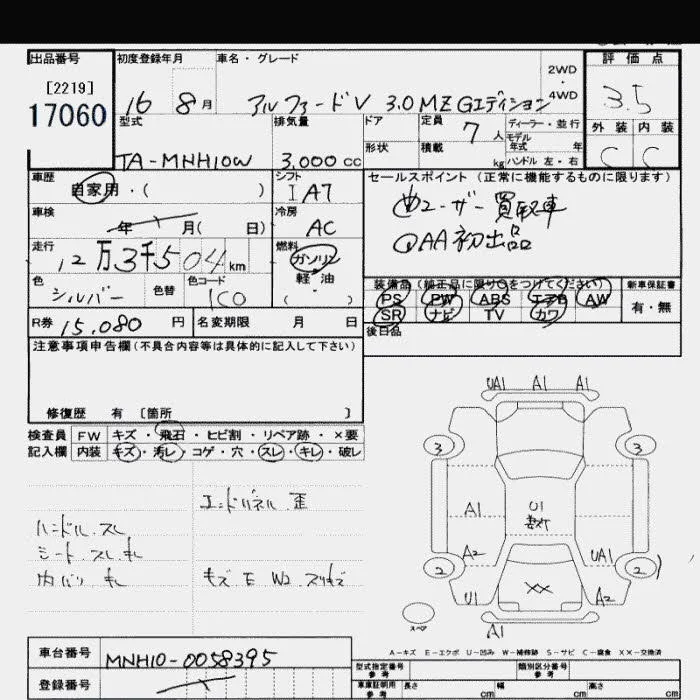 出品番号
[2219]
17060
初度登録年月
16 8月
車名・グレード
アルファードV 3.0 MZ Gエディション
2WD
・
4WD
評価点
3.5
外装 内装
C C
型式
TA-MNH10W
排気量
3,000 cc
ドア
形状
定員
7人
積載
kg
ディーラー・並行
モデル
年式 年
ハンドル 左・右
車歴
自家用・( )
シフト
IA7
車検
年 月( 日)
冷房
AC
走行
12万3千504km
燃料
ガソリン
軽・油
( ・ )
色
シルバー
色替
色コード
1C0
セールスポイント (正常に機能するものに限ります)
①ユーザー買取車
②AA初出品
装備品(純正品に限り○をつけてください)
PS PW ABS エアB AW
SR ナビ TV カワ
新車保証書
有・無
後日品
R券 15,080 円
名変期限 月 日
注意事項申告欄(不具合内容等は具体的に記入して下さい)
修復歴 有 [箇所 ]
検査員 FW キズ・飛石・ヒビ割・リペア跡・×要
記入欄 内装 キズ・汚レ・コゲ・穴・スレ・キレ・破レ
エンドパネル 歪
ハンドル.スレ
シート.スレ.キレ
内バリ キレ
キズ E W2 スリキズ
UA1 A1 A1
3 3
A1
U1
A2
UA1
2 2
U1
XX
A2
スペア
A1
A-キズ E-エクボ U-凹み W-補修跡 S-サビ C-腐食 XX-交換済
車台番号
MNH10-0058395
登録番号
型式指定番号
参考
類別区分番号
参考
車庫証明用
参考
長さ cm
幅 cm
高さ cm